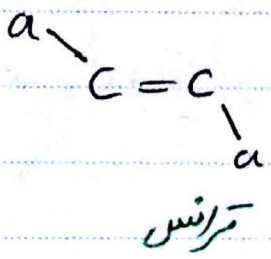 a
C = C
a
ترانس